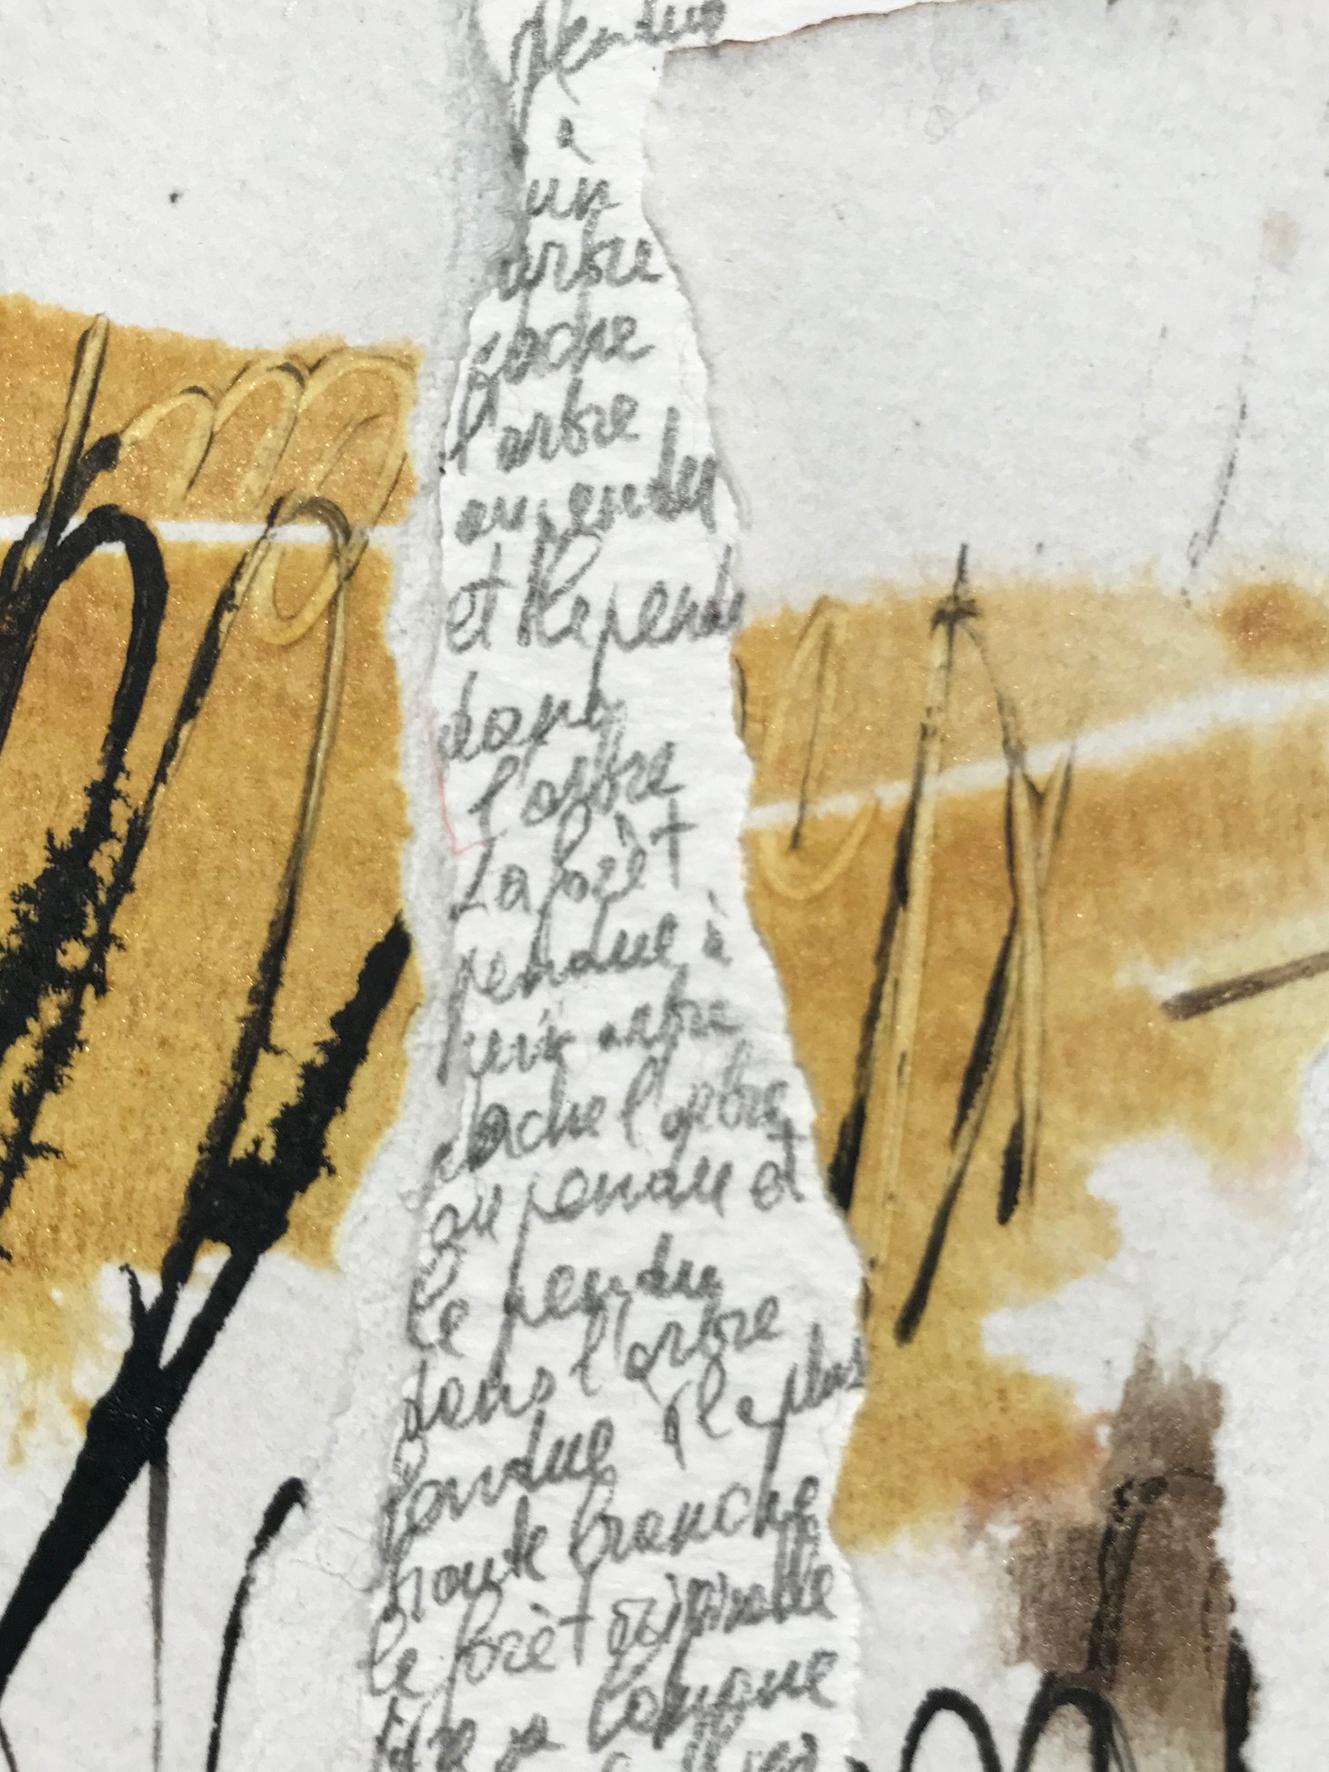 pendue
à
un
arbre
cache
l'arbre
au pendu
et le pendu
dans
l'arbre
La forêt
pendue à
arbre
cache l'arbre
au pendu et
le pendu
dans l'arbre
pendue à la plus
haute branche
la forêt originelle
tire sa langue